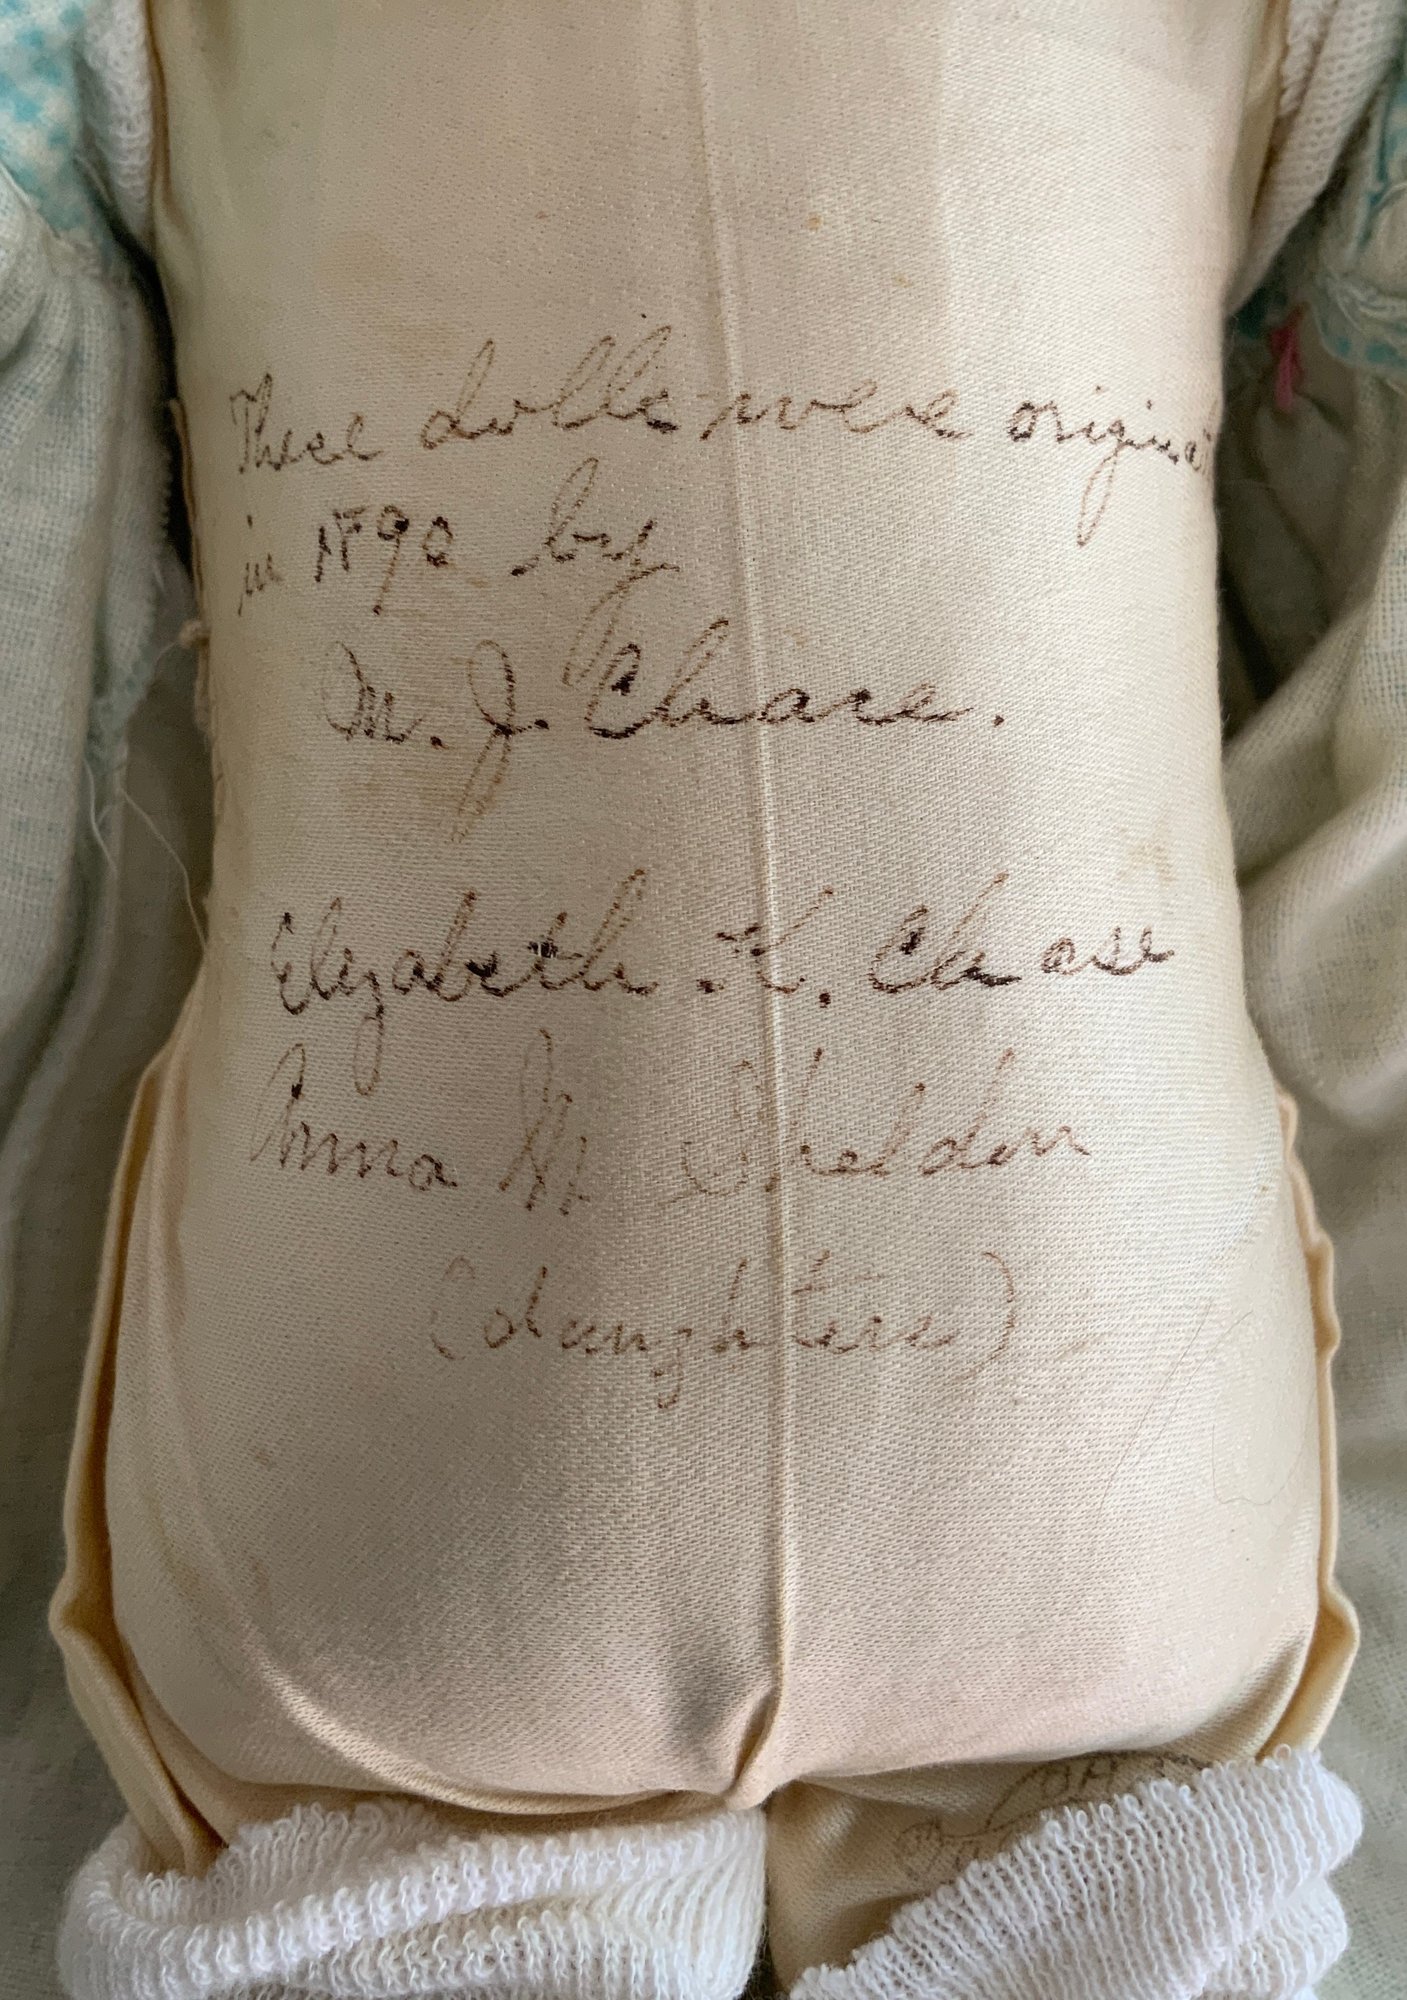 These dolls were originat
in 1890 by
M. J. Chase.
Elizabeth K. Chase
Anna M Sheldon
(daughters)